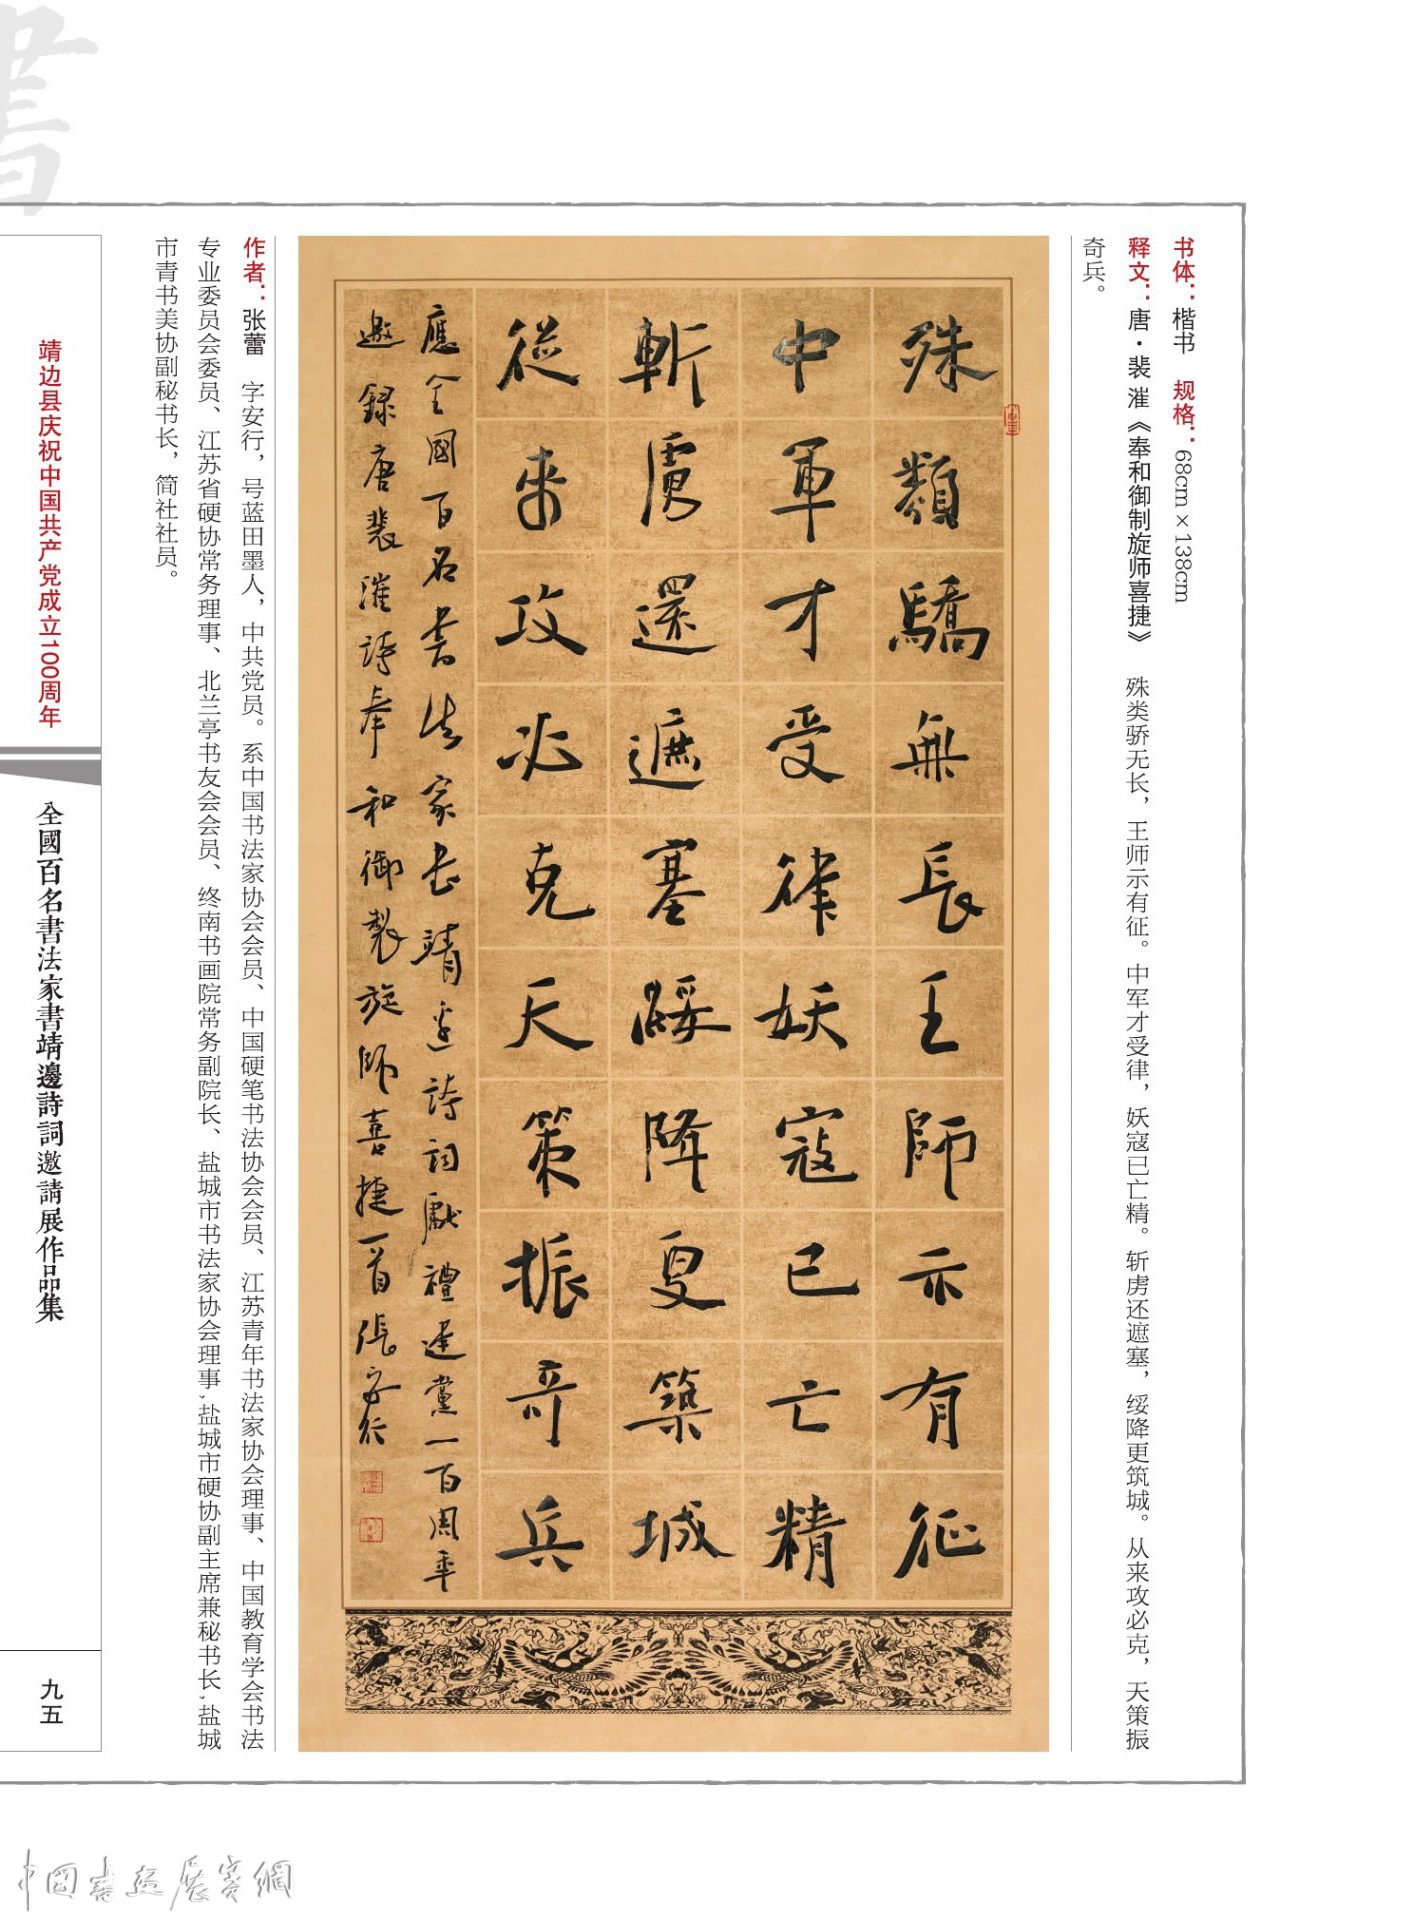 书体：楷书　规格：68cm×138cm
释文：唐·裴漼《奉和御制旋师喜捷》　殊类骄无长，王师示有征。中军才受律，妖寇已亡精。斩虏还遮塞，绥降更筑城。从来攻必克，天策振
奇兵。
殊類驕無長王師示有征
中軍才受律妖寇已亡精
斬虜還遮塞綏降更築城
從來攻必克天策振奇兵
應全國百名書法家書靖邊詩詞獻禮建黨一百周年
邀錄唐裴漼詩奉和御製旋師喜捷一首張安行
作者：张蕾　字安行，号蓝田墨人，中共党员。系中国书法家协会会员、中国硬笔书法协会会员、江苏青年书法家协会理事、中国教育学会书法
专业委员会委员、江苏省硬协常务理事、北兰亭书友会会员、终南书画院常务副院长、盐城市书法家协会理事,盐城市硬协副主席兼秘书长,盐城
市青书美协副秘书长，简社社员。
靖边县庆祝中国共产党成立100周年
全國百名書法家書靖邊詩詞邀請展作品集
九五
書
中國書画展賽網